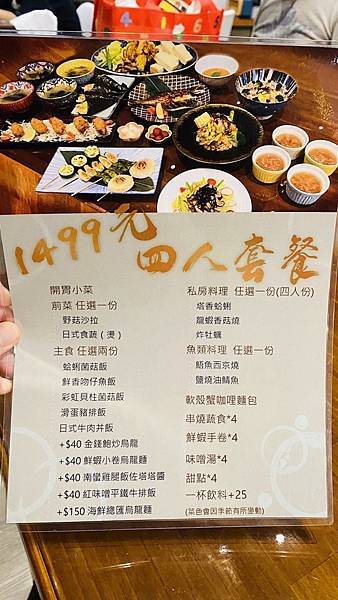 1499元
四人套餐
開胃小菜
前菜 任選一份
野菇沙拉
日式食蔬(燙)
主食 任選兩份
蛤蜊菌菇飯
鮮香吻仔魚飯
彩虹貝柱菌菇飯
滑蛋豬排飯
日式牛肉丼飯
+$40 金錢鮑炒烏龍
+$40 鮮蝦小卷烏龍麵
+$40 南蠻雞腿飯佐塔塔醬
+$40 紅味噌平鐵牛排飯
+$150 海鮮總匯烏龍麵
私房料理 任選一份(四人份)
塔香蛤蜊
龍蝦香菇燒
炸牡蠣
魚類料理 任選一份
鯃魚西京燒
鹽燒油鯖魚
軟殼蟹咖哩麵包
串燒蔬食*4
鮮蝦手卷*4
味噌湯*4
甜點*4
一杯飲料+25
(菜色會因季節有所變動)